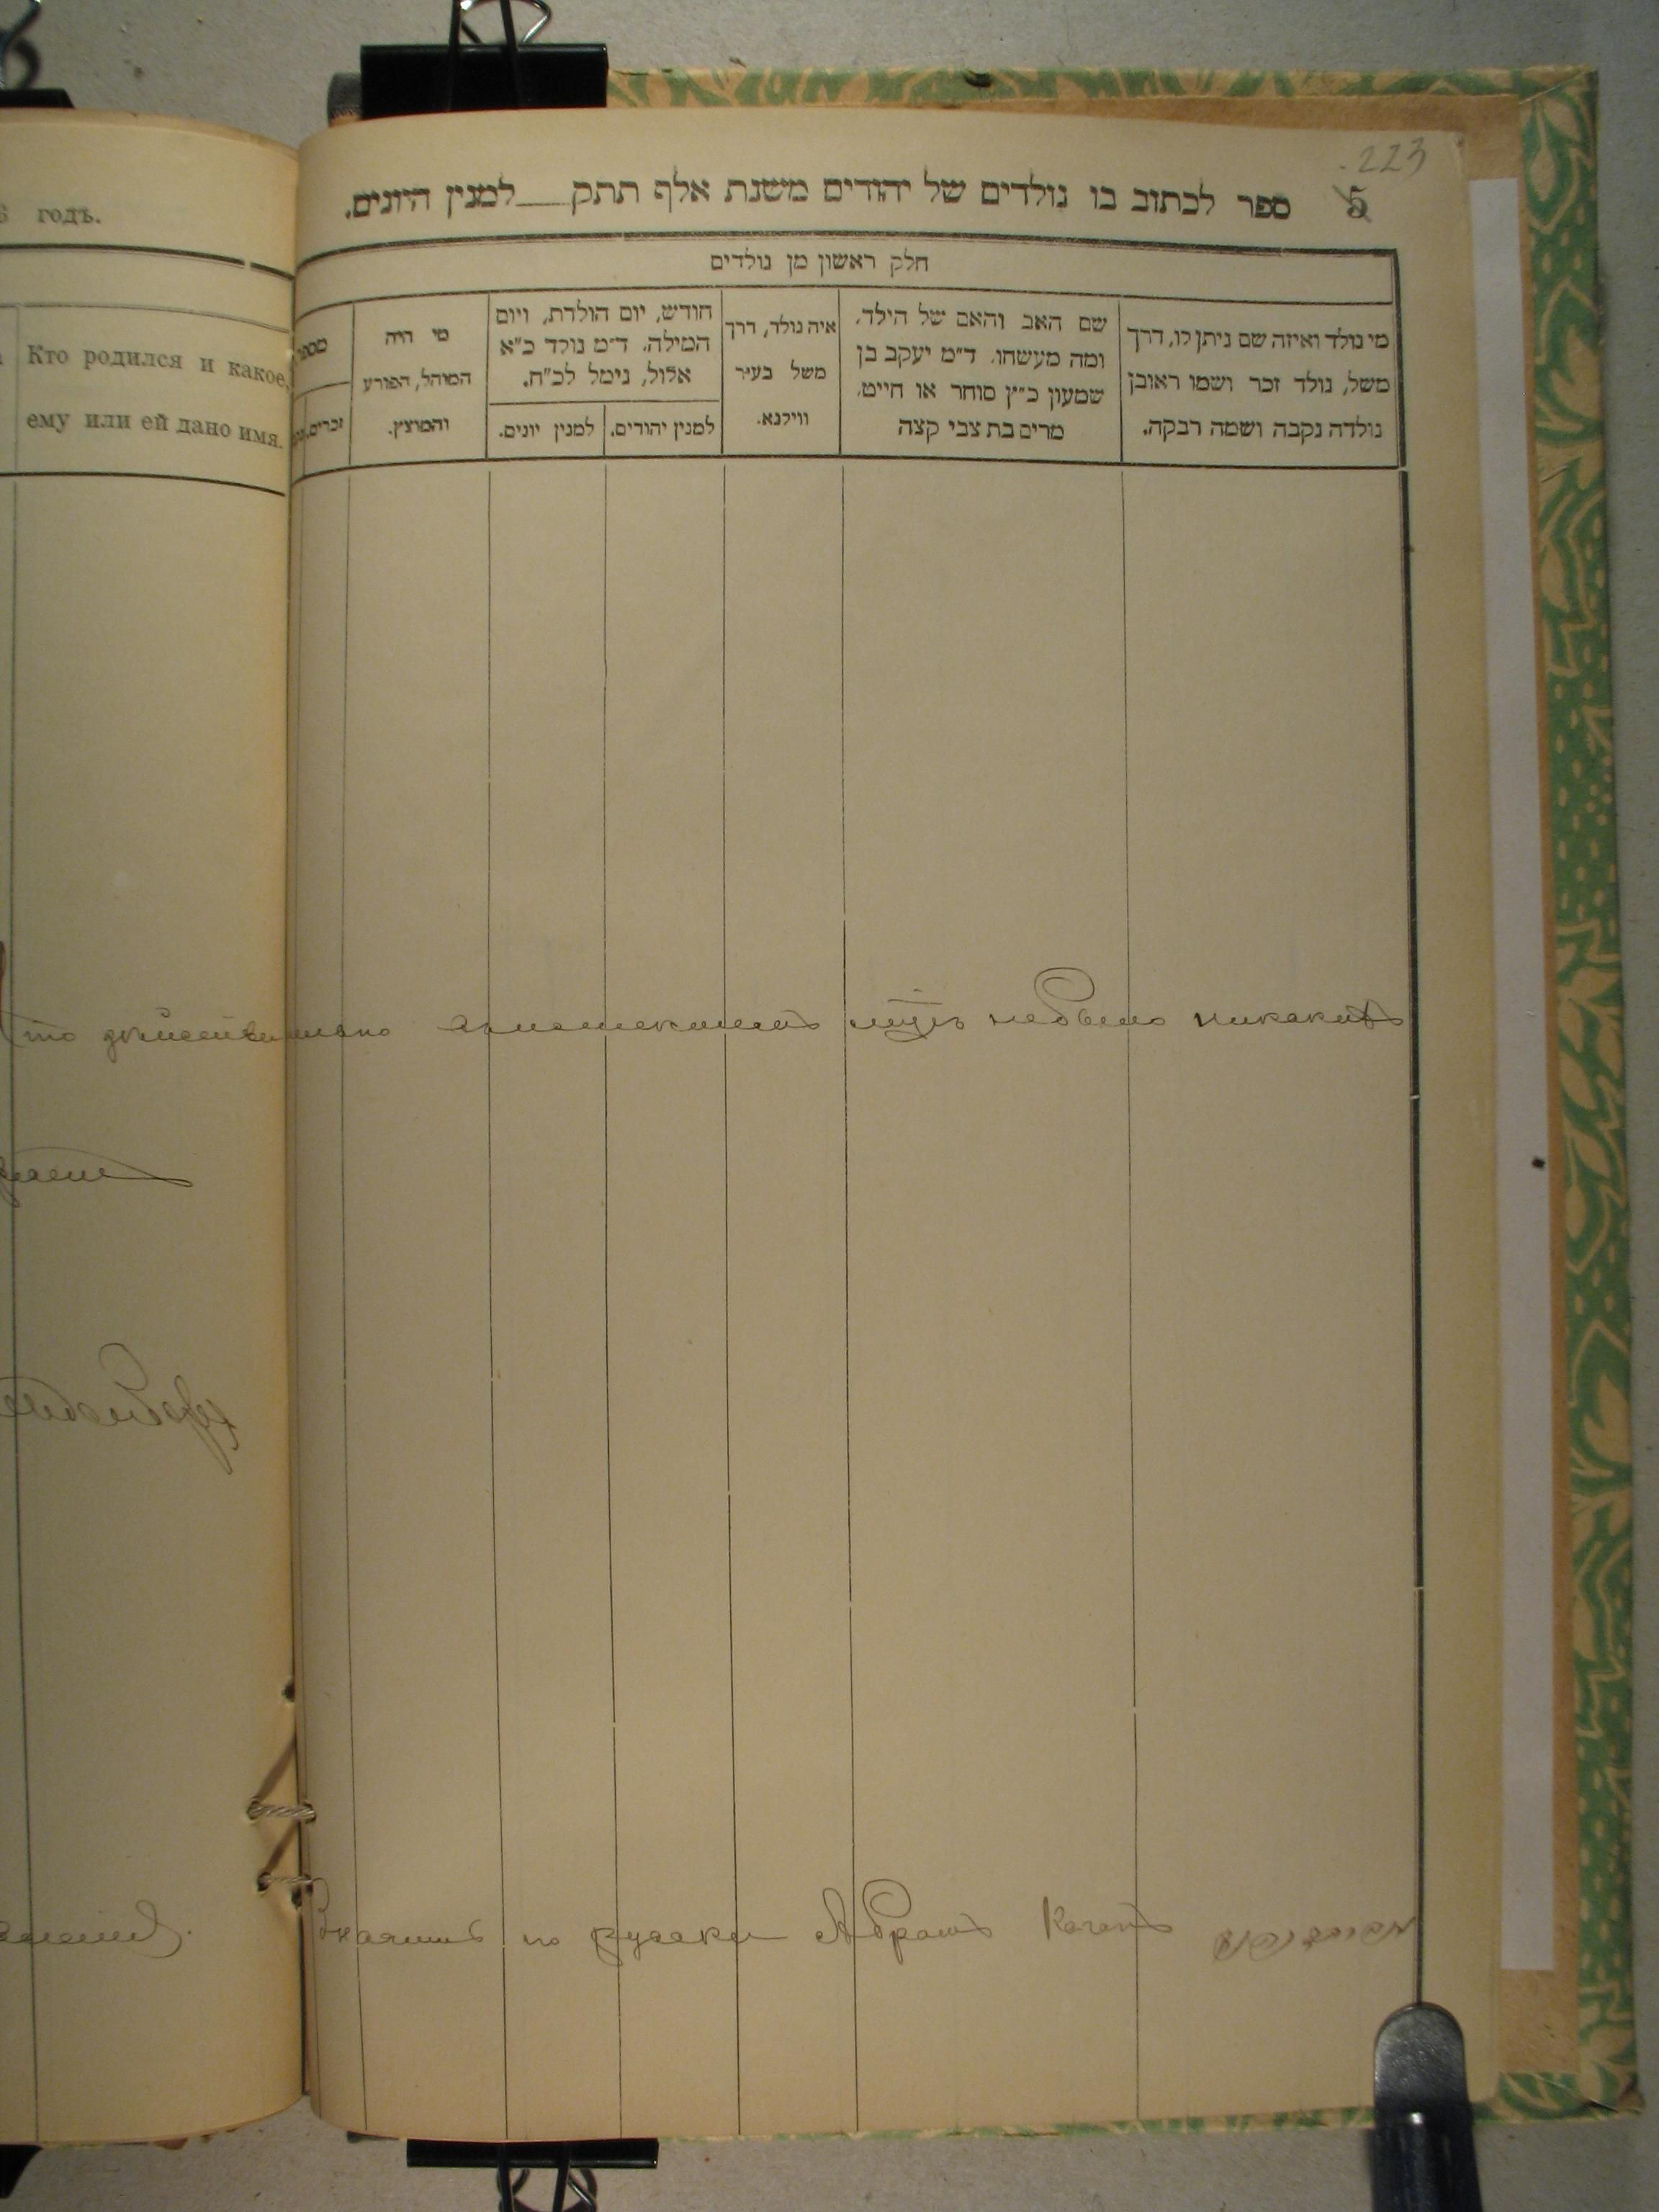 223
5 ספר לכתוב בו נולדים של יהודים משנת אלף תתק___למנין היונים.
חלק ראשון מן נולדים
מי נולד ואיזה שם ניתן לו, דרך
משל, נולד זכר ושמו ראובן
נולדה נקבה ושמה רבקה.
שם האב והאם של הילד,
ומה מעשהו. ד״מ יעקב בן
שמעון כ״ץ סוחר או חייט,
מרים בת צבי קצה
איה נולד, דרך
משל בעיר
ווילנא.
חודש, יום הולדת, ויום
המילה. ד״מ נולד כ״א
אלול, נימל לכ״ח.
למנין יהודים.
למנין יונים.
מי היה
המוהל, הפורע
והמוצץ.
מספר
זכרים.
годъ.
Кто родился и какое,
ему или ей дано имя.
что действительно лицъ небыло никакихъ
по русски Абрамъ Каганъ